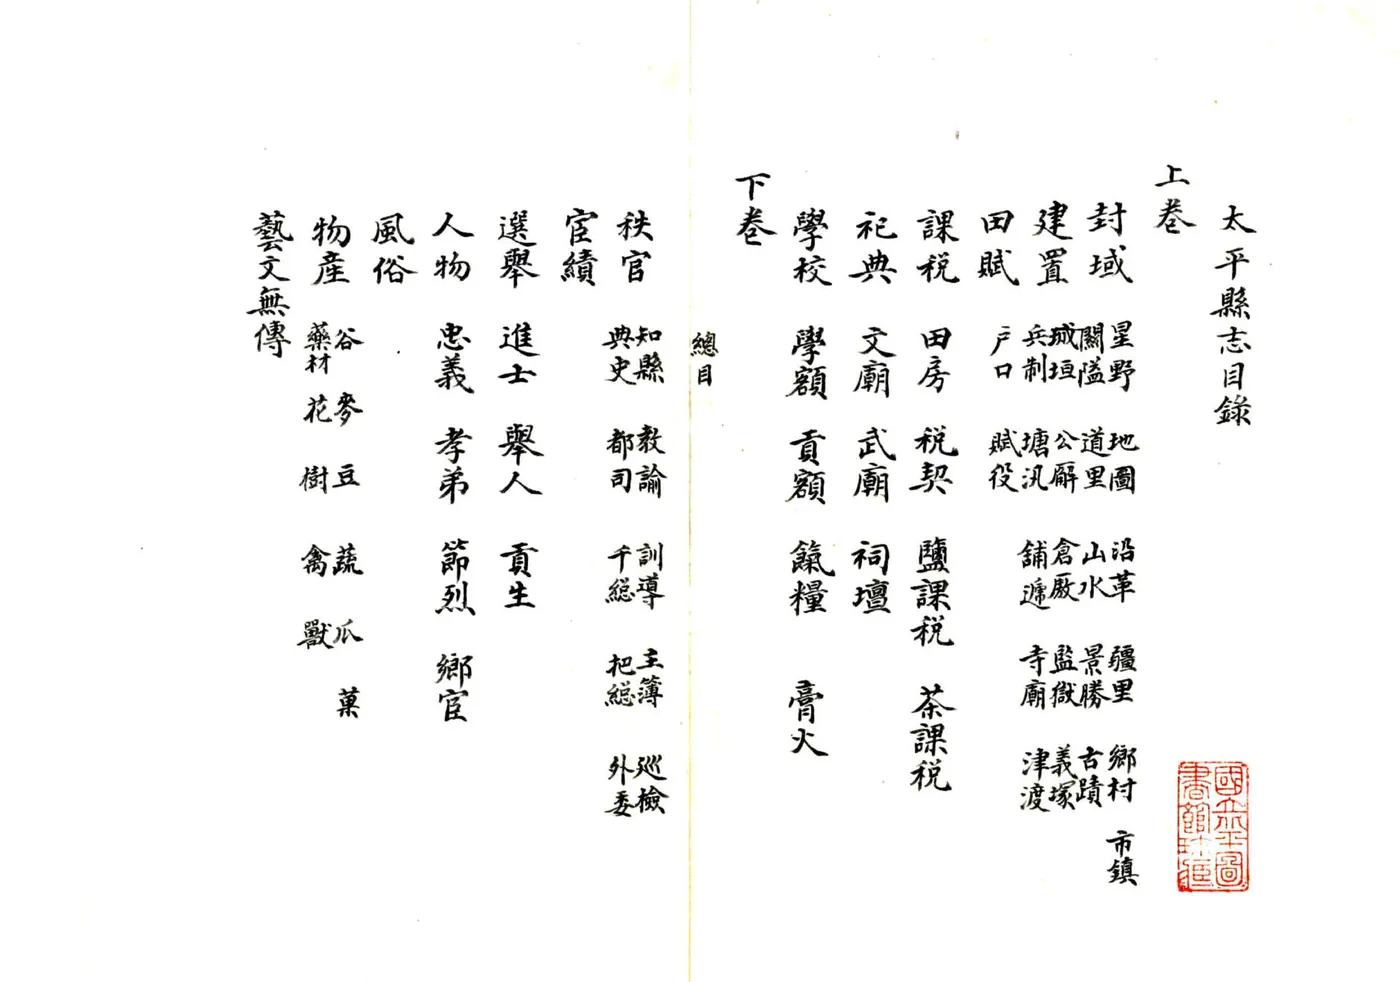 太平縣志目錄
上卷
封域 星野 地圖 沿革 疆里 鄉村 市鎮
關隘 道里 山水 景勝 古蹟
建置 城垣 公廨 倉廒 監獄 義塚
兵制 塘汛 舖遞 寺廟 津渡
田賦 戶口 賦役
課税 田房 税契 鹽課税 茶課税
祀典 文廟 武廟 祠壇
學校 學額 貢額 餼糧 膏火
下卷
總目
秩官 知縣 教諭 訓導 主簿 巡檢
典史 都司 千緫 把緫 外委
宦績
選舉 進士 舉人 貢生
人物 忠義 孝弟 節烈 鄉宦
風俗
物産 谷 麥 豆 蔬 瓜 菓
藥材 花 樹 禽 獸
藝文無傳